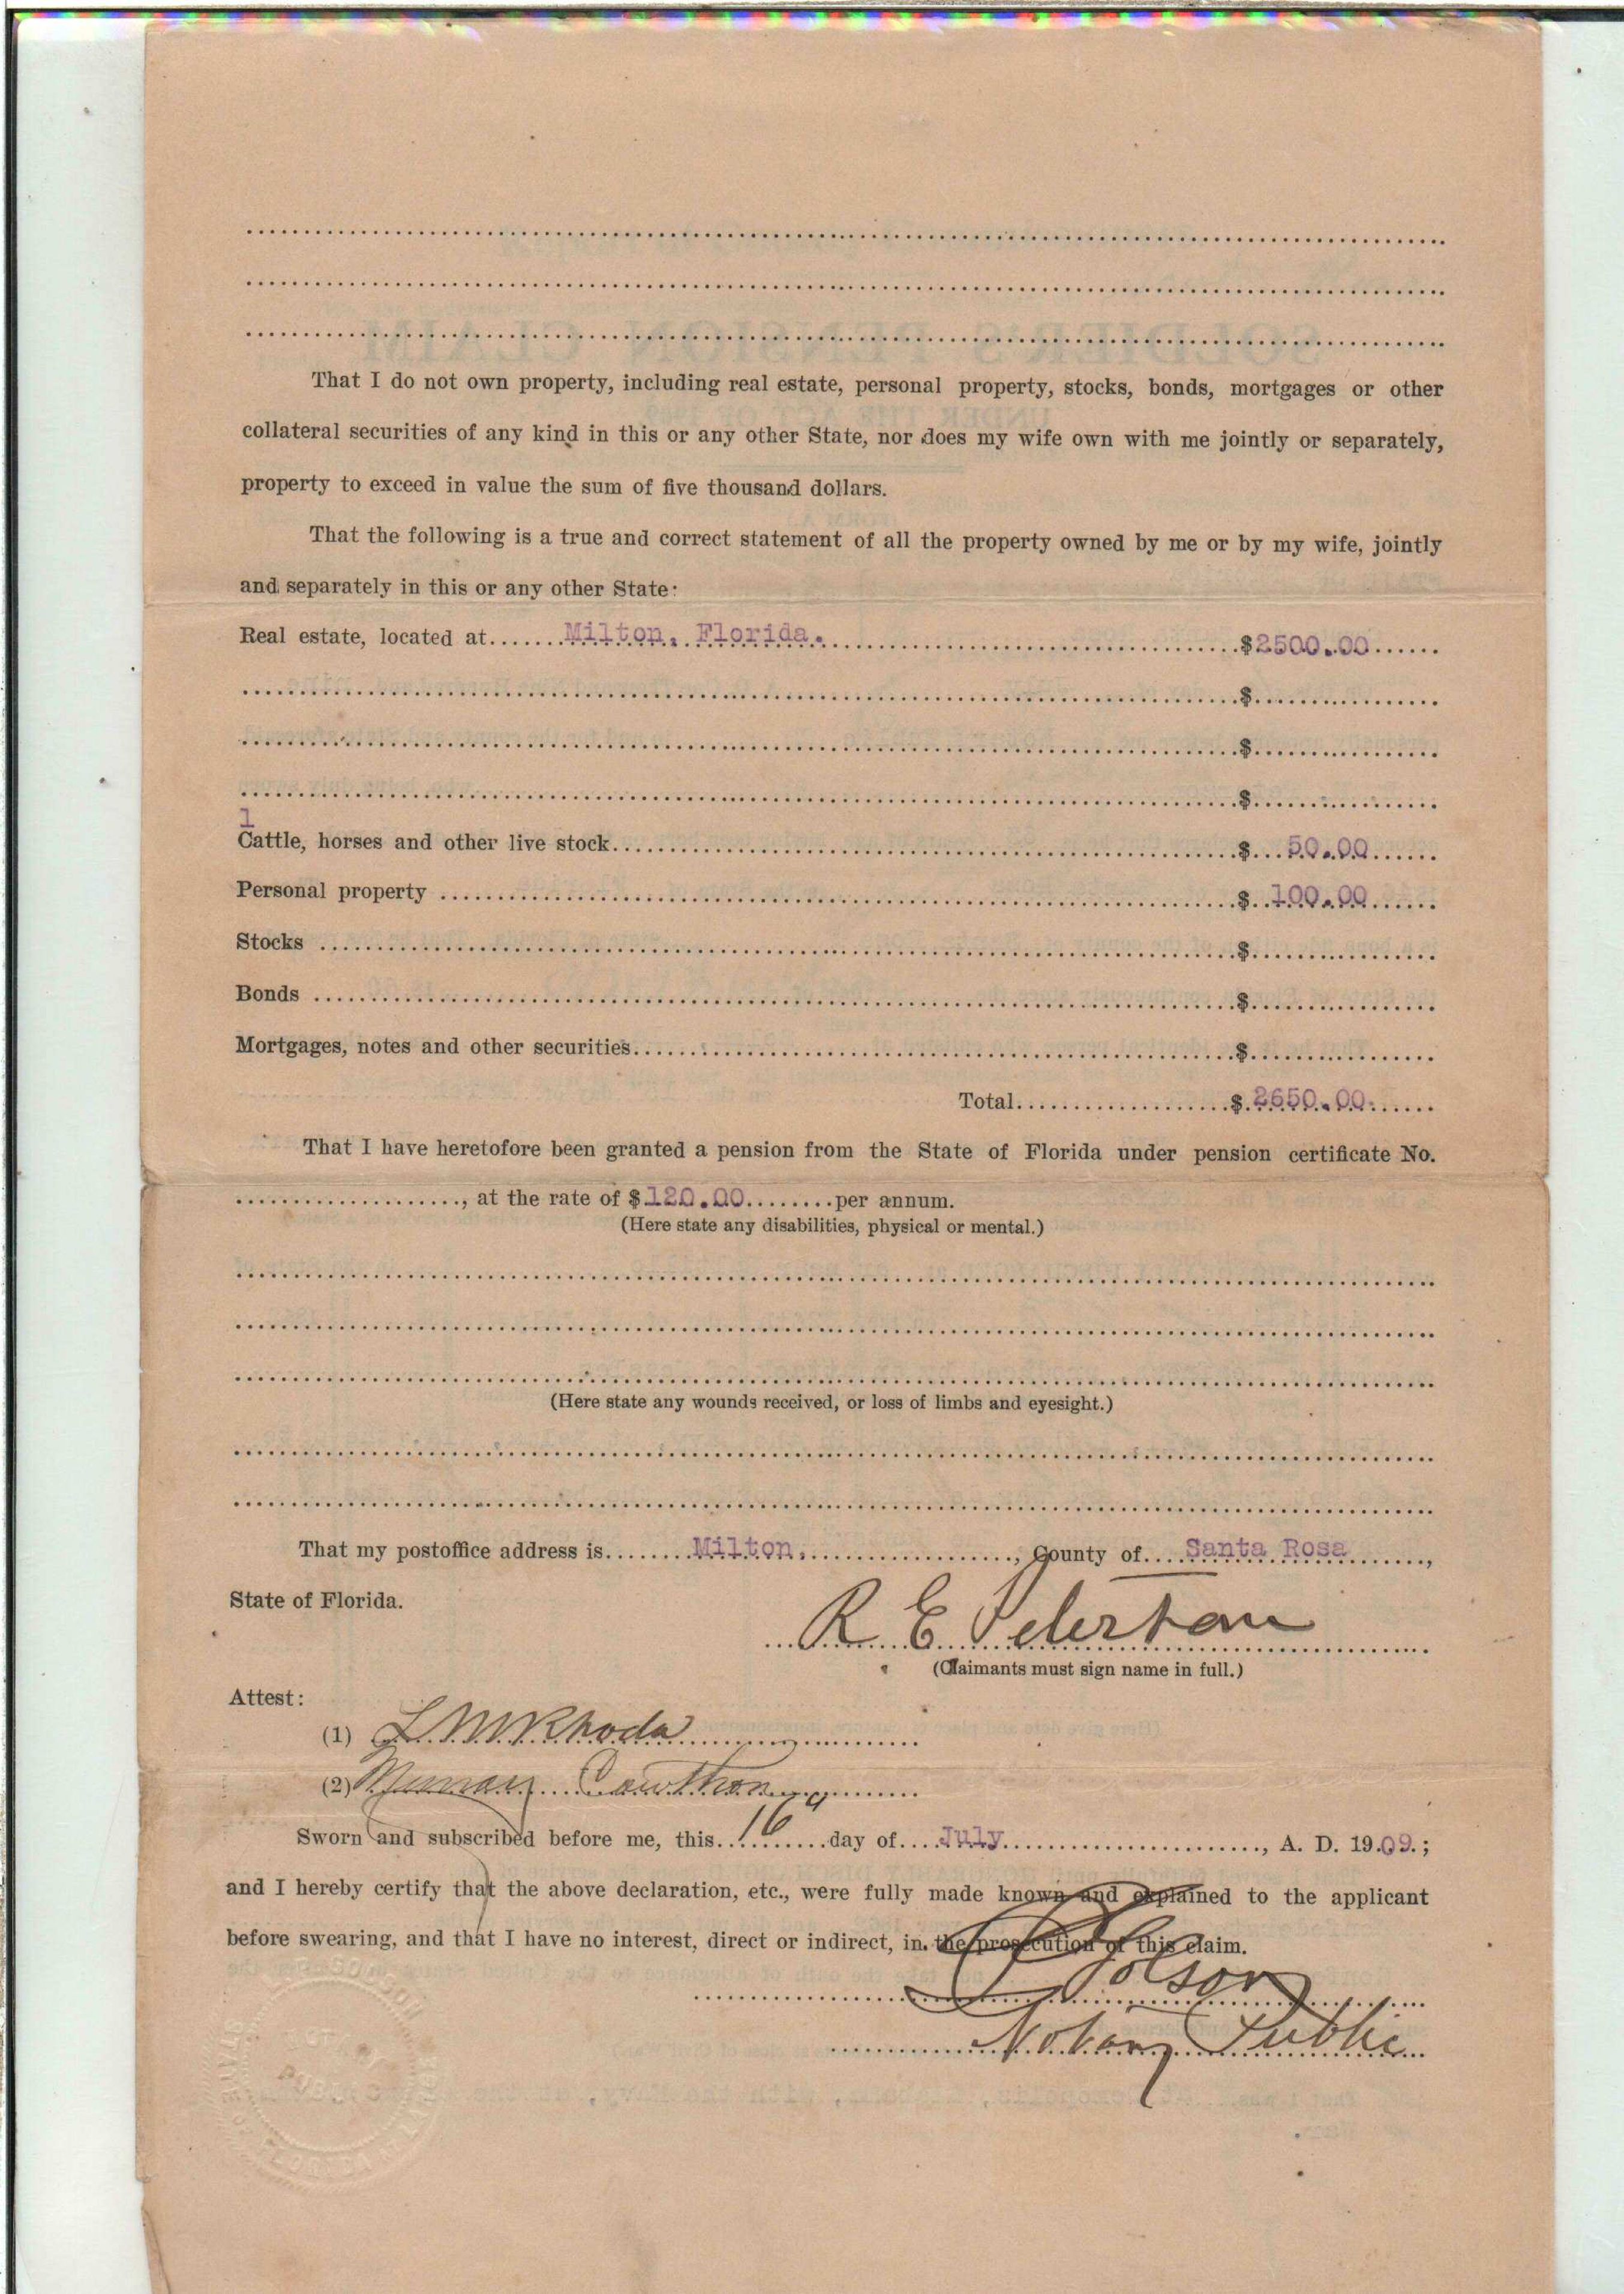 That I do not own property, including real estate, personal property, stocks, bonds, mortgages or other
collateral securities of any kind in this or any other State, nor does my wife own with me jointly or separately,
property to exceed in value the sum of five thousand dollars.
That the following is a true and correct statement of all the property owned by me or by my wife, jointly
and separately in this or any other State:
Real estate, located at Milton, Florida. $2500.00
$
$
$
1
Cattle, horses and other live stock $ 50.00
Personal property $ 100.00
Stocks $
Bonds $
Mortgages, notes and other securities $
Total $ 2650.00
That I have heretofore been granted a pension from the State of Florida under pension certificate No.
, at the rate of $120.00 per annum.
(Here state any disabilities, physical or mental.)
(Here state any wounds received, or loss of limbs and eyesight.)
That my postoffice address is Milton, , County of Santa Rosa ,
State of Florida.
R. E.
(Claimants must sign name in full.)
Attest:
(1) L M Rhoda
(2) Cawthon
Sworn and subscribed before me, this 16 day of July , A. D. 1909.;
and I hereby certify that the above declaration, etc., were fully made known and explained to the applicant
before swearing, and that I have no interest, direct or indirect, in the prosecution of this claim.
Golson
Notary Public